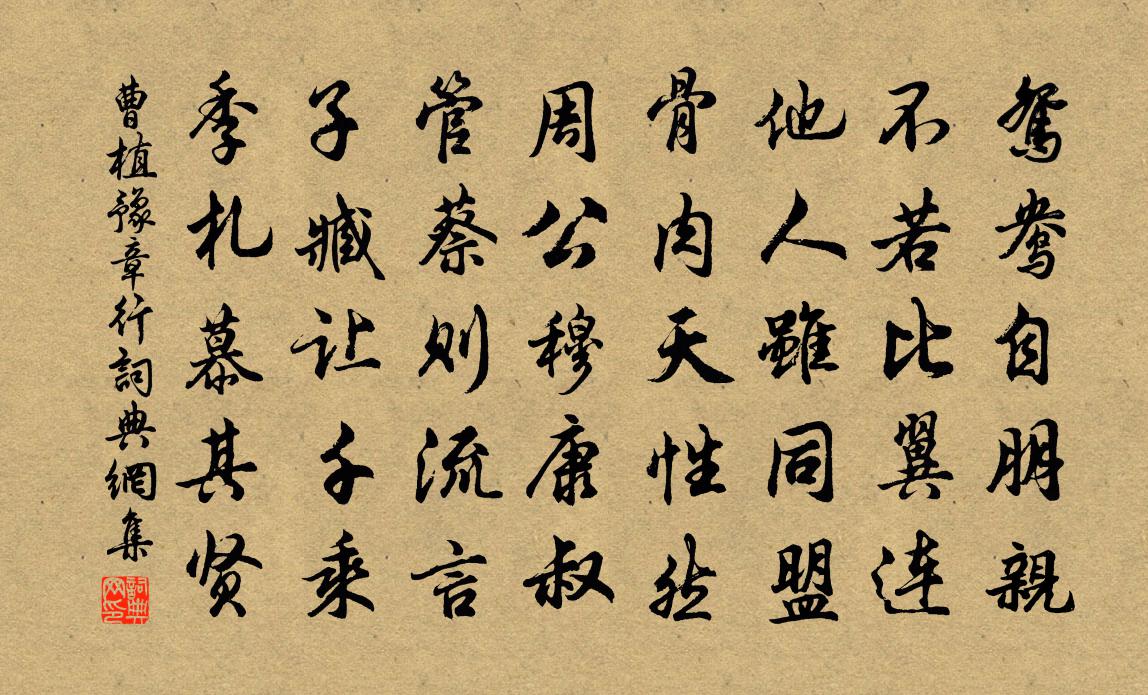 鴛鴦自朋親
不若比翼連
他人雖同盟
骨肉天性然
周公穆康叔
管蔡則流言
子臧让千乘
季札慕其贤
曹植豫章行詞典網集
詞典网印